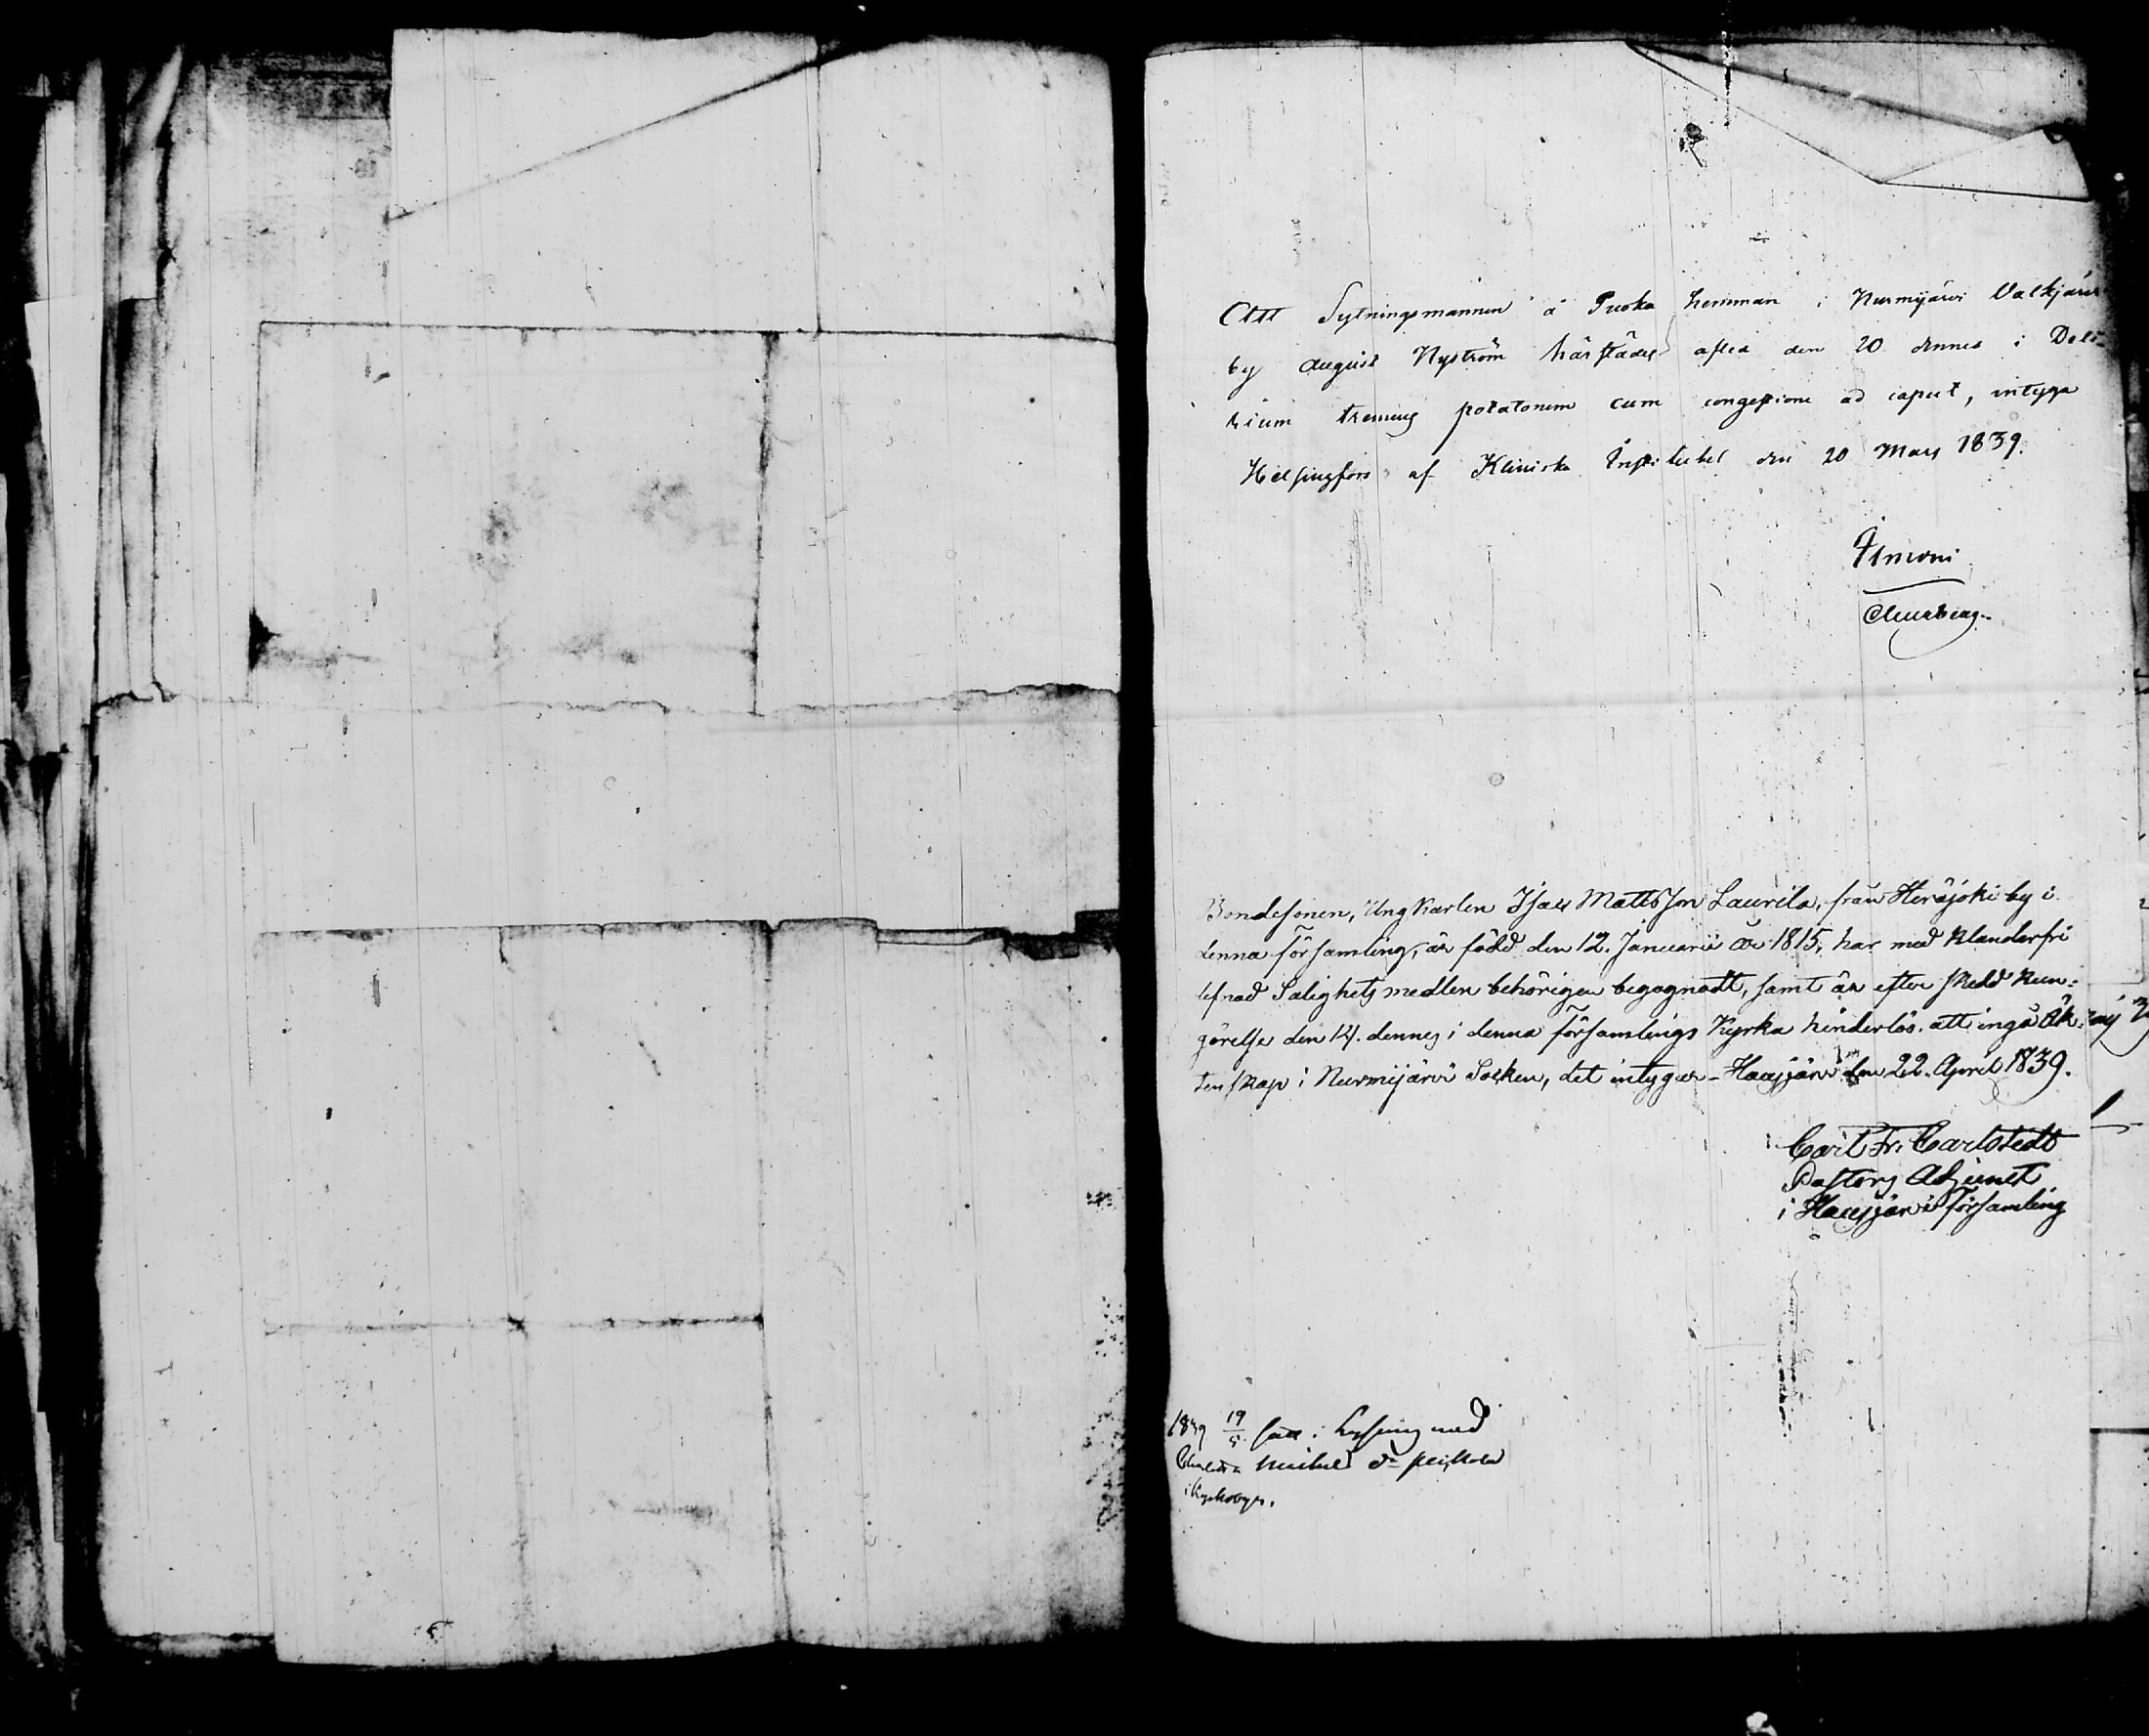 Att Sytningsmannen å Puoka hemman i Nurmijärvi Valkjärvi
by August Nyström härstädes afled den 20 dennes i Deli-
rium tremens potatorum cum congestione ad caput, intyga
Helsingfors af Kliniska Institutet den 20 Mars 1839.
Bondesonen, Ungkarlen Isac Mattsson Laurila, från Herajoki by i
denna församling, är född den 12. Januarii år 1815, har med klanderfri
lefnad Salighets medlen behörigen begagnadt, samt är efter skedd kun-
görelse den 14. dennes i denna församlings Kyrka hinderlös att ingå Äk-
tenskap i Nurmijärvi Socken, det intygar Hausjärvi den 22. April 1839.
Carl Fr. Carlstedt
Pastors Adjunct
i Hausjärvi församling
1839 19/5 i Lysning med
i Kyrkobyn.